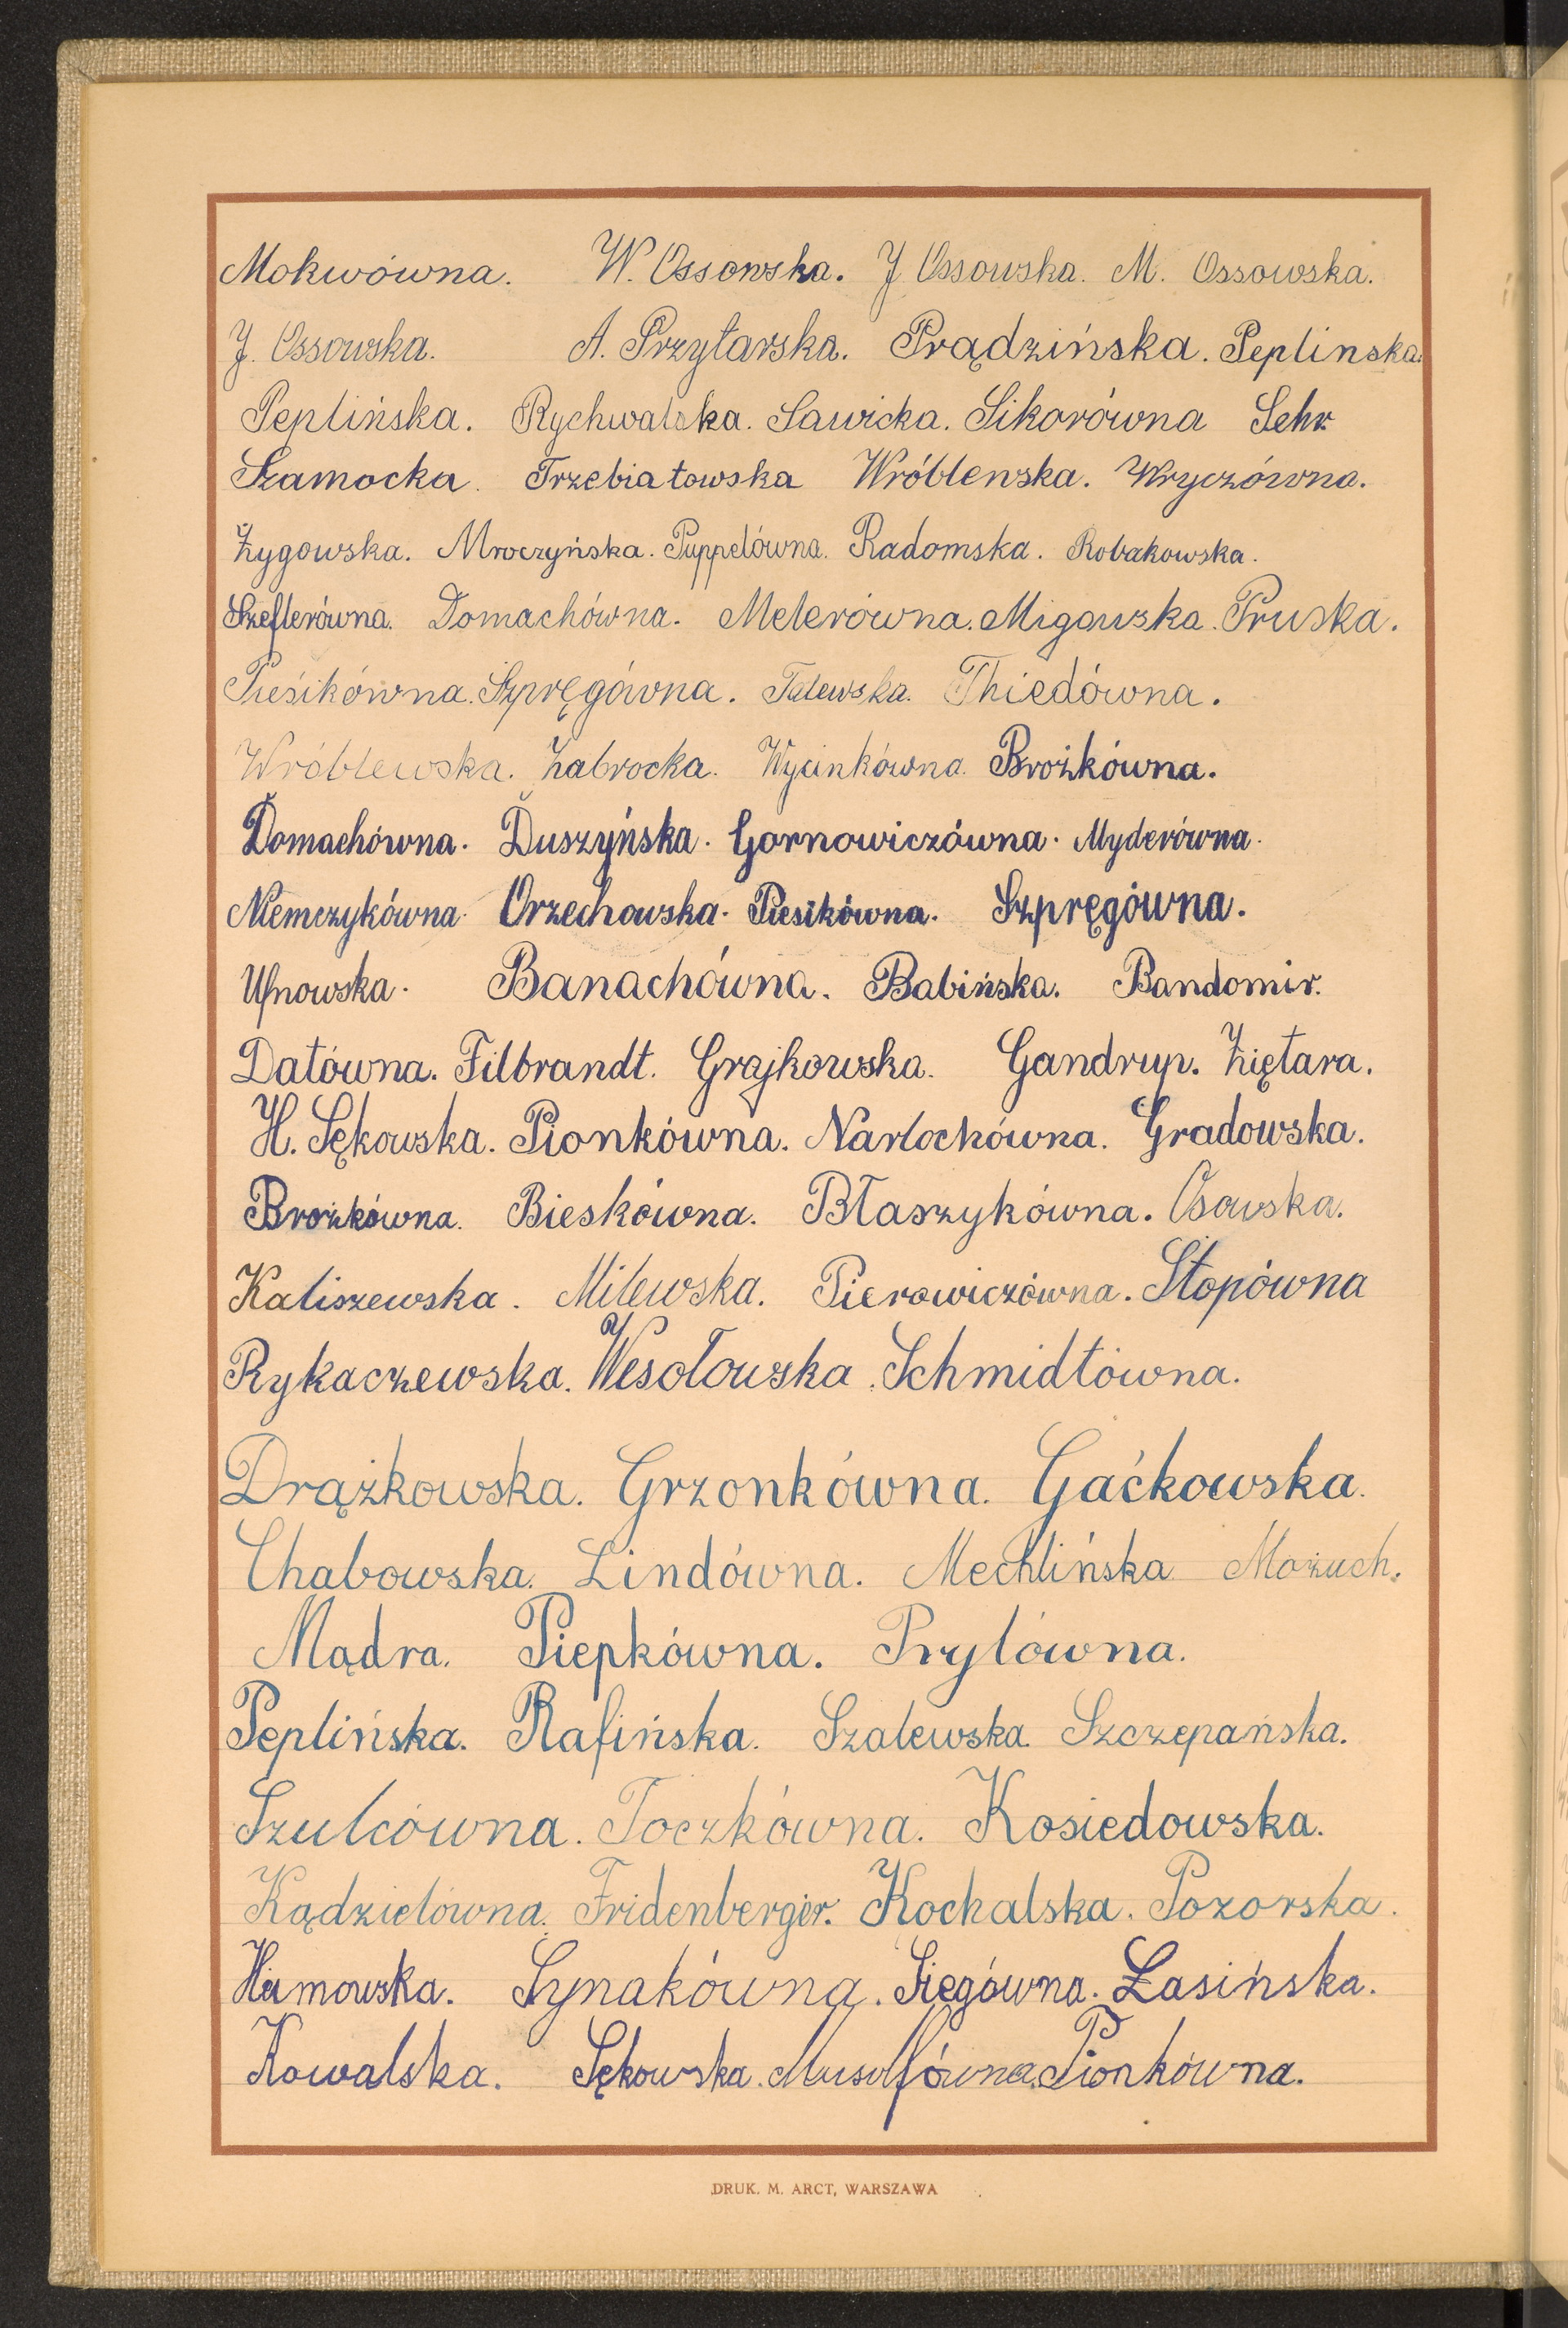 Mokwówna. W. Ossowska. J Ossowska. M. Ossowska.
J. Ossowska. A. Przytarska. Prądzińska. Peplinska.
Peplińska. Rychwalska. Sawicka. Sikorówna Sehr.
Szamocka. Trzebiatowska Wróblewska. Wryczówna.
Żygowska. Mroczyńska. Puppelówna. Radomska. Robakowska.
Szeflerówna. Domachówna. Melerówna. Migowska. Pruska.
Piesikówna. Szpręgówna. Talewska. Thiedówna.
Wróblewska. Żabrocka. Wycinkówna. Brożkówna.
Domachówna. Duszyńska. Gornowiczówna. Myderówna.
Niemczykówna. Orzechowska. Piesikówna. Szpręgówna.
Ufnowska. Banachówna. Babińska. Bandomir.
Datówna. Filbrandt. Grajkowska. Gandryp. Ziętara.
H. Sękowska. Pionkówna. Narlochówna. Gradowska.
Brożkówna. Bieskówna. Błaszykówna. Osowska.
Kaliszewska. Milewska. Pierowiczówna. Stopówna
Rykaczewska. Wesołowska. Schmidtówna.
Drążkowska. Grzonkówna. Gaćkowska.
Chabowska. Lindówna. Mechlińska Możuch.
Mądra. Piepkówna. Prylówna.
Peplińska. Rafińska. Szalewska. Szczepańska.
Szulcówna. Toczkówna. Kosiedowska.
Kądzielówna. Fridenberger. Kochalska. Pozorska.
Hamowska. Synakówna. Siegówna. Łasińska.
Kowalska. Sękowska. Musolfówna. Pionkówna.
DRUK. M. ARCT, WARSZAWA